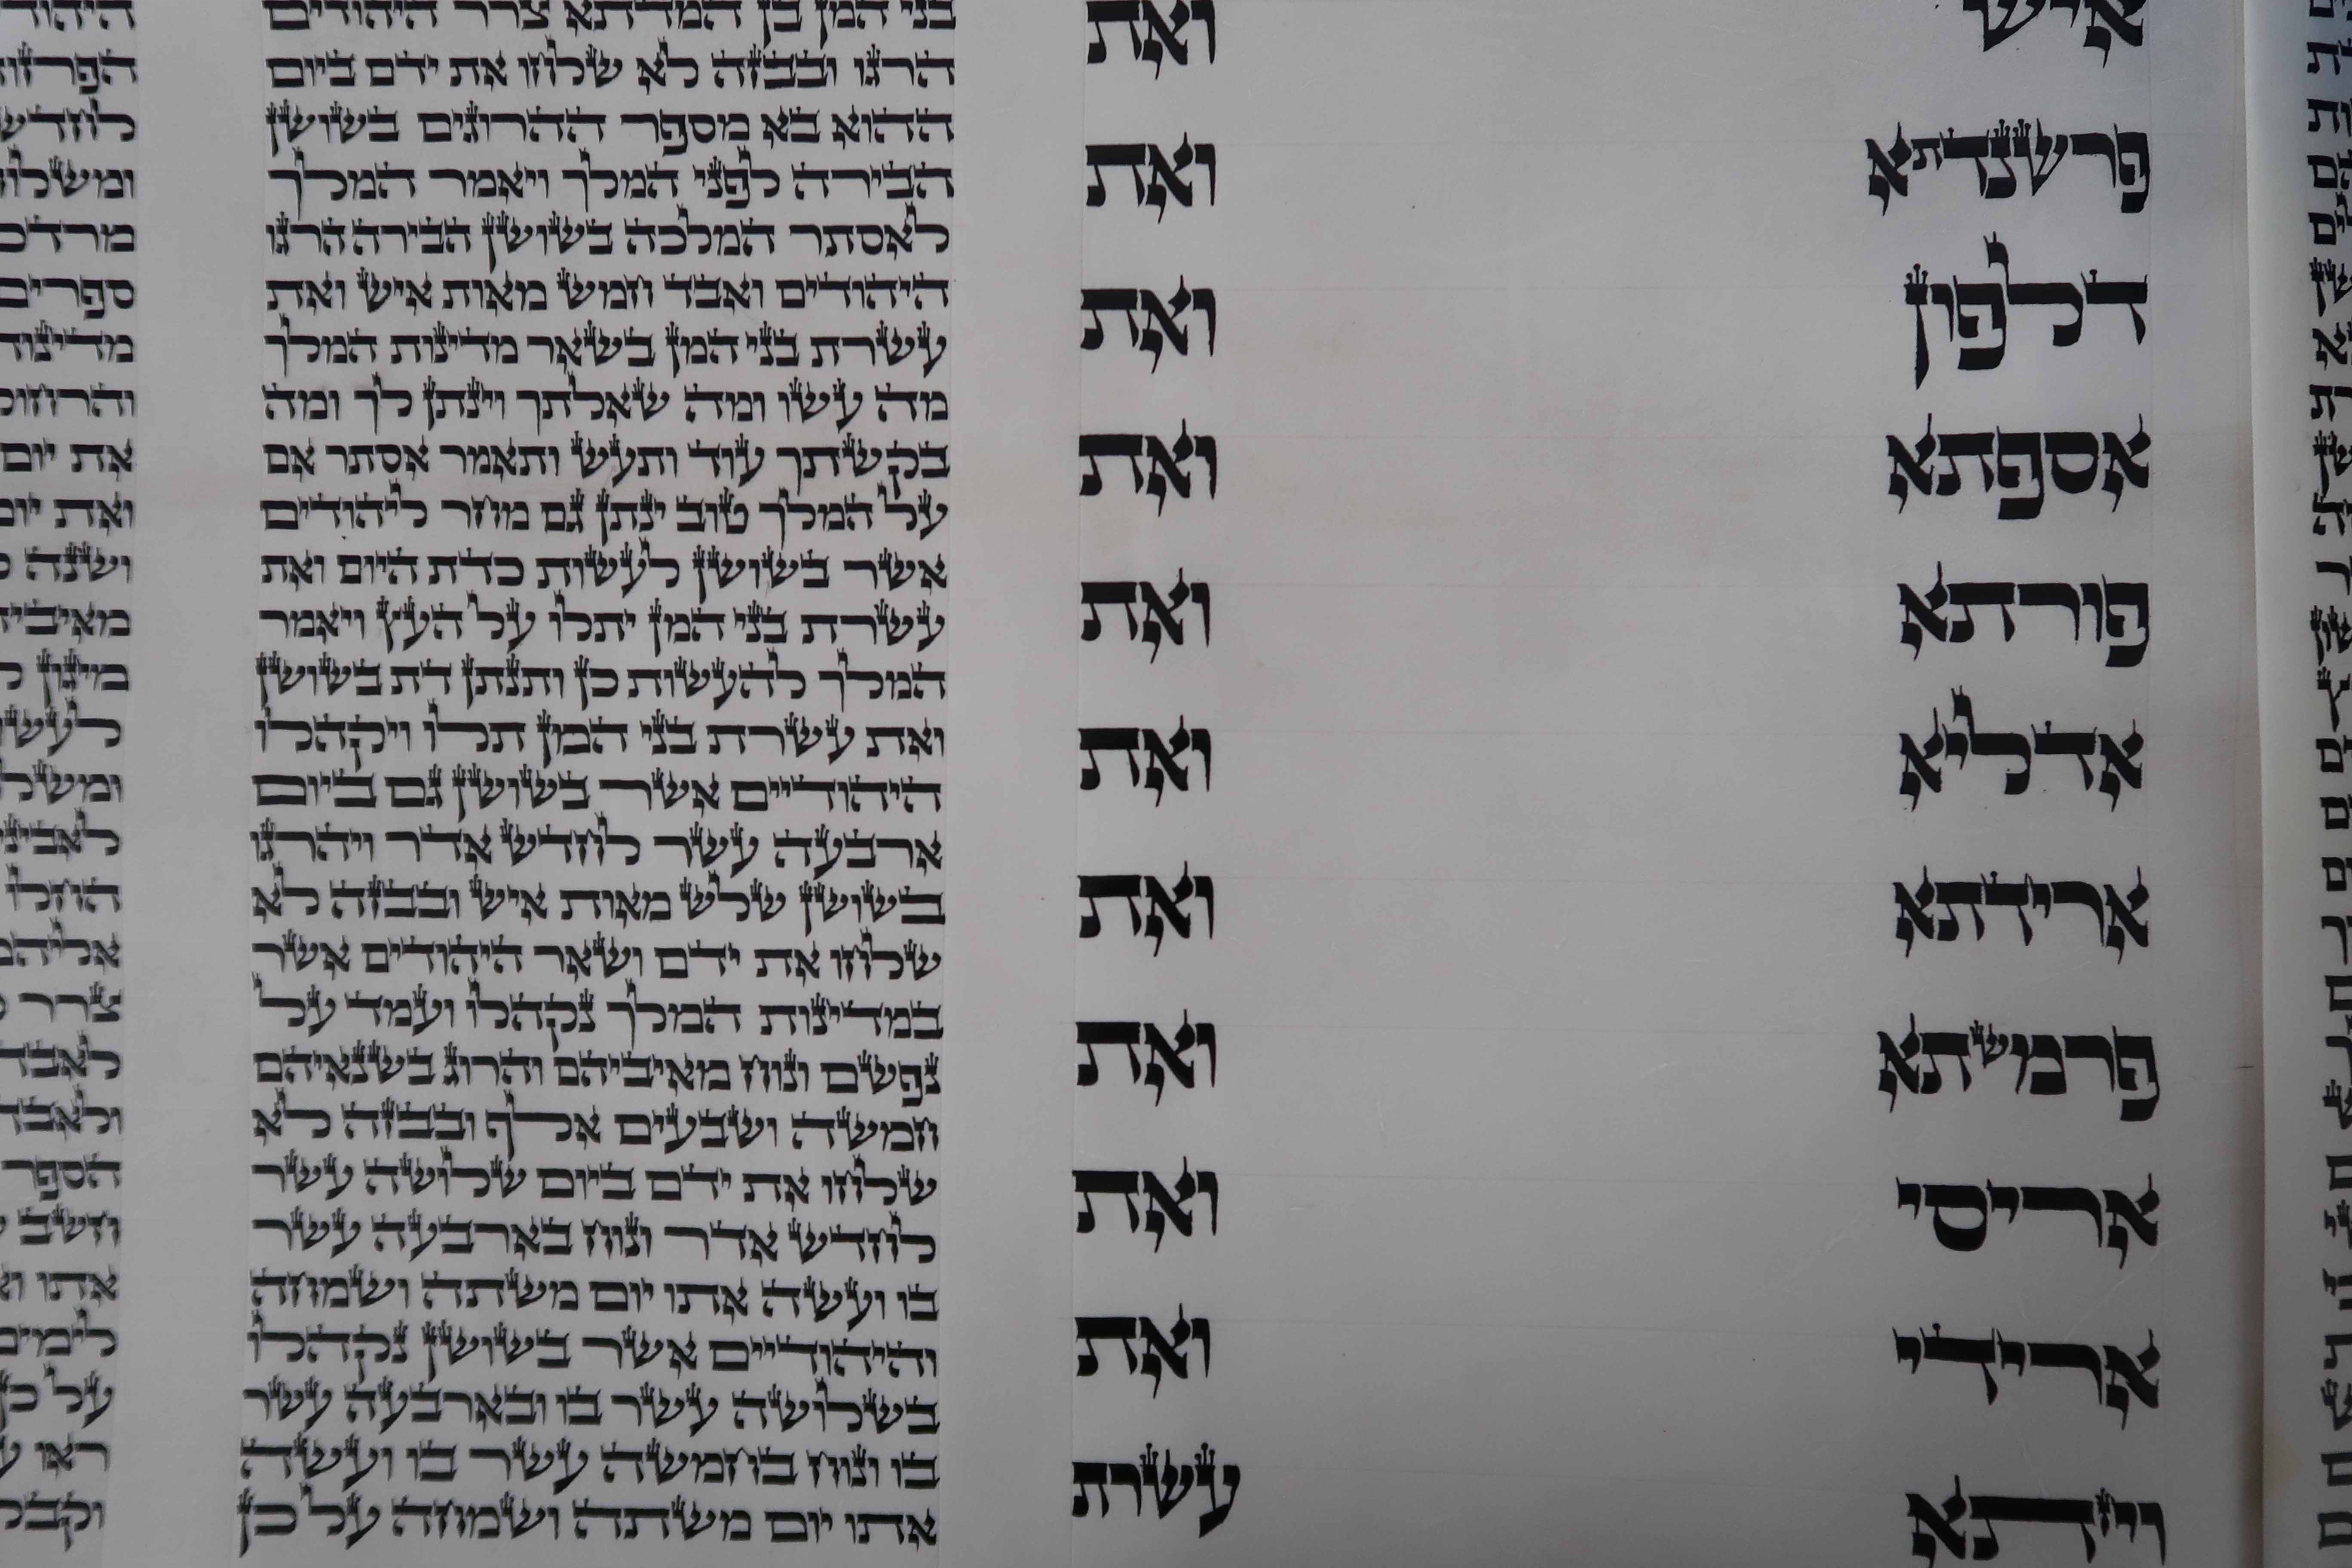 איש ואת
פרשנדתא ואת
דלפון ואת
אספתא ואת
פורתא ואת
אדליא ואת
ארידתא ואת
פרמשתא ואת
אריסי ואת
ארידי ואת
ויזתא עשרת
בני המן בן המדתא צרר היהודים
הרגו ובבזה לא שלחו את ידם ביום
ההוא בא מספר ההרוגים בשושן
הבירה לפני המלך ויאמר המלך
לאסתר המלכה בשושן הבירה הרגו
היהודים ואבד חמש מאות איש ואת
עשרת בני המן בשאר מדינות המלך
מה עשו ומה שאלתך וינתן לך ומה
בקשתך עוד ותעש ותאמר אסתר אם
על המלך טוב ינתן גם מחר ליהודים
אשר בשושן לעשות כדת היום ואת
עשרת בני המן יתלו על העץ ויאמר
המלך להעשות כן ותנתן דת בשושן
ואת עשרת בני המן תלו ויקהלו
היהודיים אשר בשושן גם ביום
ארבעה עשר לחדש אדר ויהרגו
בשושן שלש מאות איש ובבזה לא
שלחו את ידם ושאר היהודים אשר
במדינות המלך נקהלו ועמד על
נפשם ונוח מאיביהם והרוג בשנאיהם
חמשה ושבעים אלף ובבזה לא
שלחו את ידם ביום שלושה עשר
לחדש אדר ונוח בארבעה עשר
בו ועשה אתו יום משתה ושמחה
והיהודיים אשר בשושן נקהלו
בשלושה עשר בו ובארבעה עשר
בו ונוח בחמשה עשר בו ועשה
אתו יום משתה ושמחה על כן
היהוד
הפרזו
לחדש
ומשלו
מרדכ
ספרים
מדינו
והרחו
את יום
ואת יום
ושנה
מאיביה
מיגון
לעשו
ומשל
לאביני
החלו
אליהם
צרר
לאבד
ולאבד
הספר
חשב
אתו
לימים
על כן
ראו
וקבל